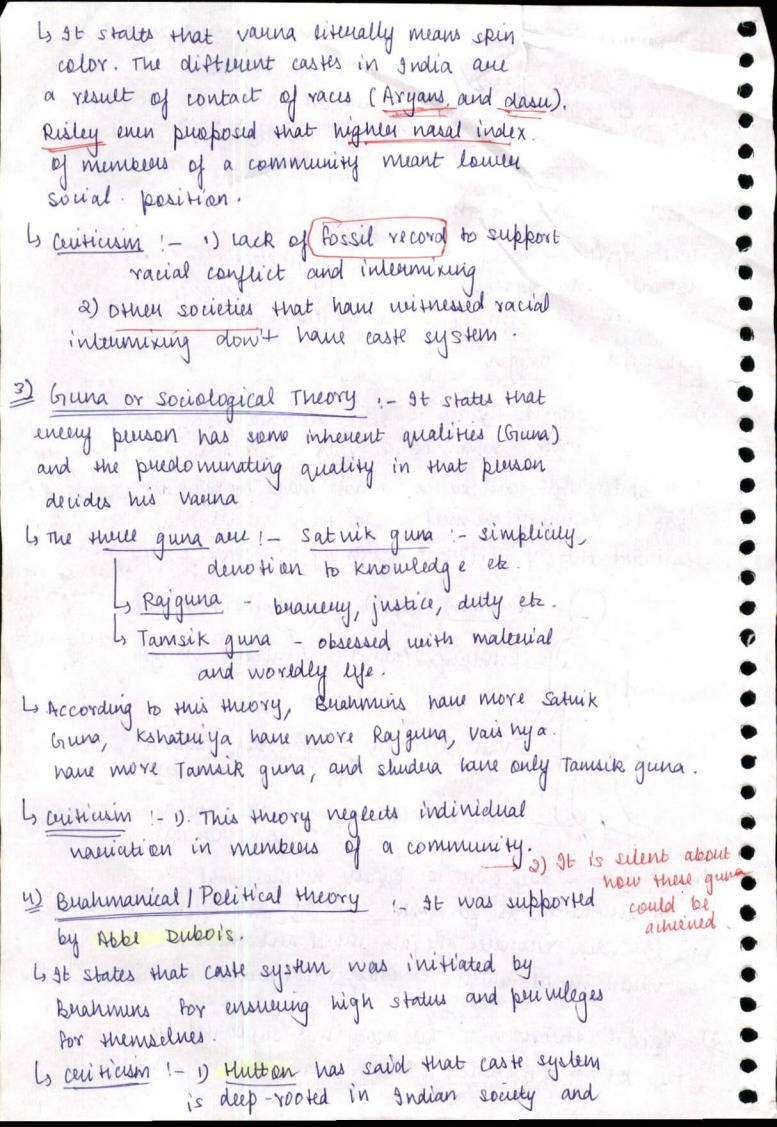 ↳ It states that varna literally means skin
color. The different castes in India are
a result of contact of races (Aryans and dasu).
Risley even proposed that higher nasal index
of members of a community meant lower
social position.
↳ Criticism :- 1) lack of fossil record to support
racial conflict and intermixing
2) Other societies that have witnessed racial
intermixing don't have caste system.
3) Guna or Sociological Theory :- It states that
every person has some inherent qualities (Guna)
and the predominating quality in that person
decides his varna
↳ The three guna are :- Satvik guna :- simplicity,
devotion to knowledge etc.
↳ Rajguna - bravery, justice, duty etc.
↳ Tamsik guna - obsessed with material
and worldly life.
↳ According to this theory, Brahmins have more Satvik
Guna, Kshatriya have more Rajguna, vaishya
have more Tamsik guna, and shudra have only Tamsik guna.
↳ Criticism :- 1). This theory neglects individual
variation in members of a community.
→ 2) It is silent about
how these guna
could be
achieved
4) Brahmanical / Political theory :- It was supported
by Abbe Dubois.
↳ It states that caste system was initiated by
Brahmins for ensuring high status and privileges
for themselves
↳ Criticism :- 1) Hutton has said that caste system
is deep-rooted in Indian society and